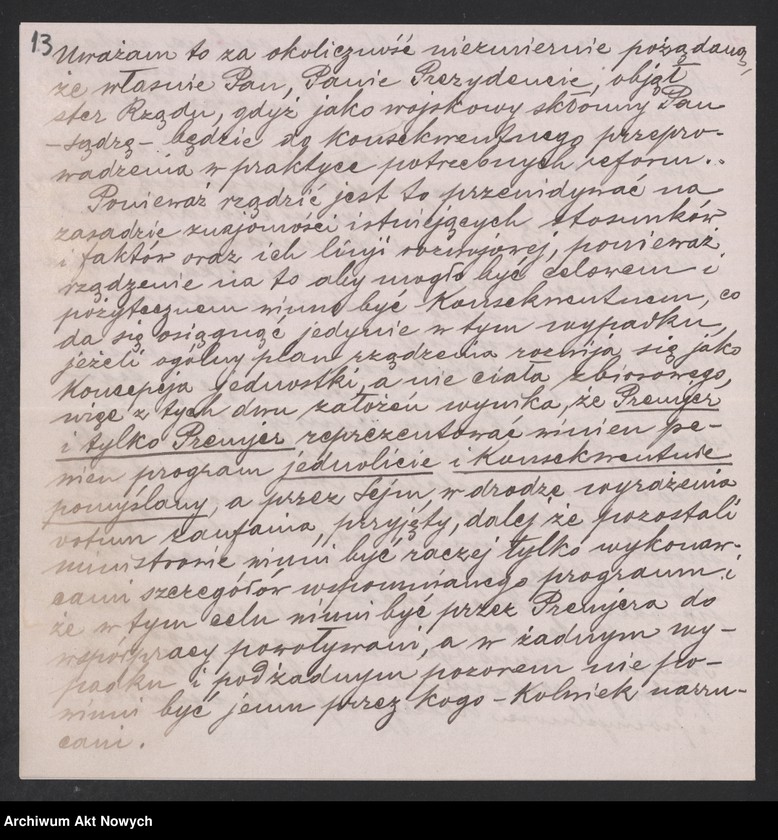 13
Uważam to za okoliczność niezmiernie pożądaną,
że właśnie Pan, Panie Prezydencie, objął
ster Rządu, gdyż jako wojskowy skłonny Pan
- sądzę - będzie do konsekwentnego przepro-
wadzenia w praktyce potrzebnych reform..
Ponieważ rządzić jest to przewidywać na
zasadzie znajomości istniejących stosunków
i faktów oraz ich linji rozwojowej, ponieważ
rządzenie na to aby mogło być celowem i
pożytecznem winno być konsekwentnem, co
da się osiągnąć jedynie w tym wypadku,
jeżeli ogólny plan rządzenia rozwija się jako
koncepcja jednostki, a nie ciała zbiorowego,
więc z tych dwu założeń wynika, że Premjer
i tylko Premjer reprezentować winien pe-
wien program jednolicie i konsekwentnie
pomyślany, a przez Sejm, w drodze wyrażenia
votum zaufania, przyjęty, dalej że pozostali
ministrowie winni być raczej tylko wykonaw-
cami szczegółów wspomnianego programu i
że w tym celu winni być przez Premjera do
współpracy powoływani, a w żadnym wy-
padku i pod żadnym pozorem nie po-
winni być jemu przez kogo-kolwiek narzu-
cani.
Archiwum Akt Nowych